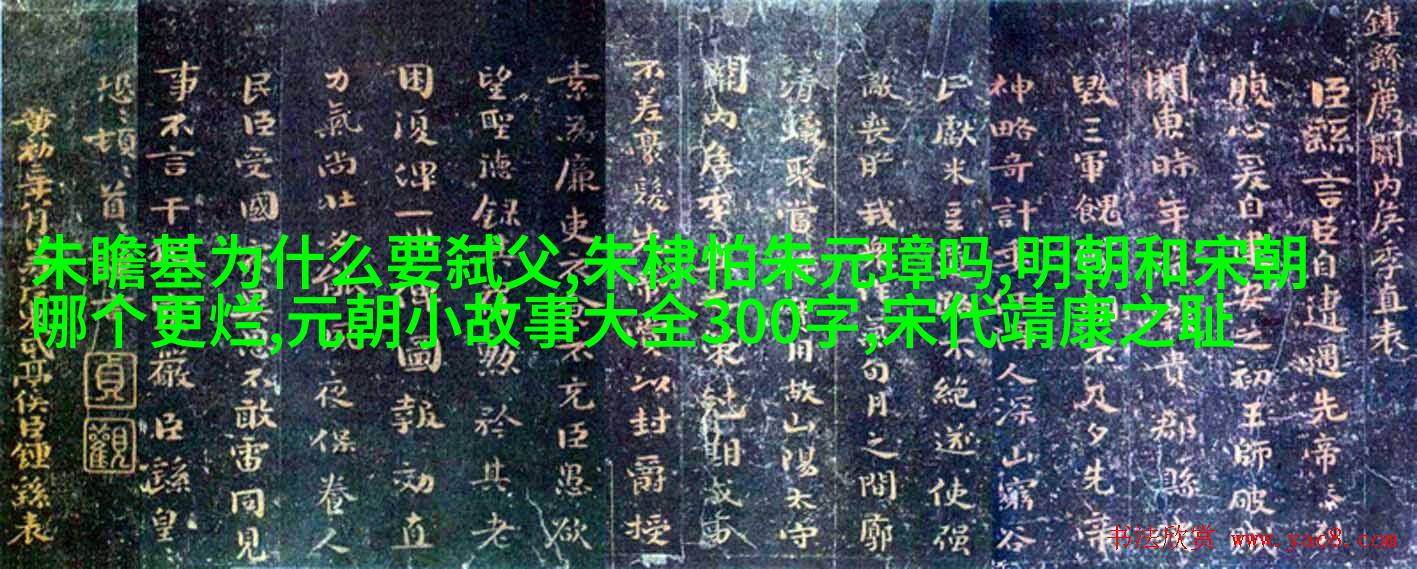 鍾繇薦關內侯季直表
臣繇言臣自遭遇先帝
腹心爰自建安之初王師破賊
關東時年荒穀貴郡縣殘
毀三軍餽饟朝不及夕先帝
神略奇計委任得人深山窮谷
民獻米豆道路不絕遂使强
敵喪膽我衆作氣旬月之間廓
清蟻聚當時實用故山陽太守
關內侯季直之策剋期成事
不差豪髮先帝賞以封爵授
素為廉吏衣食不充臣愚欲
望聖德錄其舊勳矜其老
困復俾一州俾圖報効直
力氣尚壯必能夙夜保養人
民臣受國家異恩不敢雷同見
事不言干犯宸嚴臣繇皇
恐恐頓首頓首
黃初二年八月日司徒東武亭侯臣鍾繇表
貞
觀
朱瞻基为什么要弑父,朱棣怕朱元璋吗,明朝和宋朝
哪个更烂,元朝小故事大全300字,宋代靖康之耻
书法欣赏 www.yac8.com